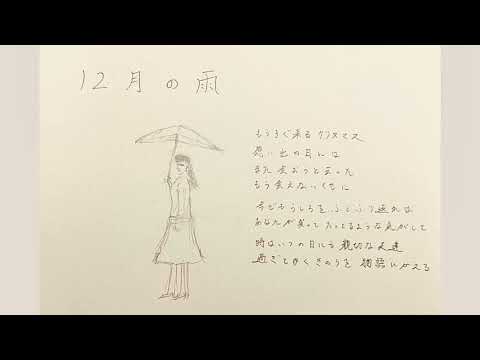 12月の雨
もうすぐ来る クリスマス
思い出の日には
また会おうと云った
もう会えないくせに
今でもうしろを ふとふり返れば
あなたが笑ってたってるような気がして
時はいつの日にも 親切な友達
過ぎてゆくきのうを 物語にかえる